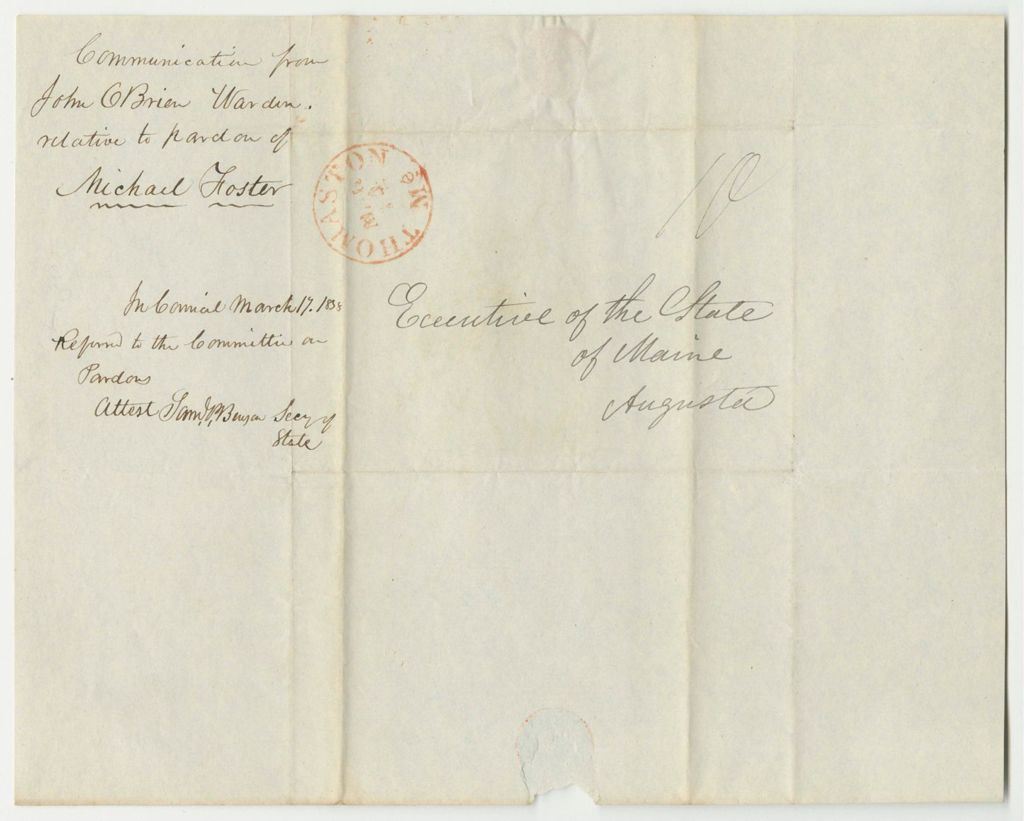 Communication from
John OBrien Warden.
relative to pardon of
Michael Foster
In Council March 17. 1838
Referred to the Committee on
Pardons
Attest Saml P. Benson Secy of
State
THOMASTON Me
10
Executive of the State
of Maine
Augusta